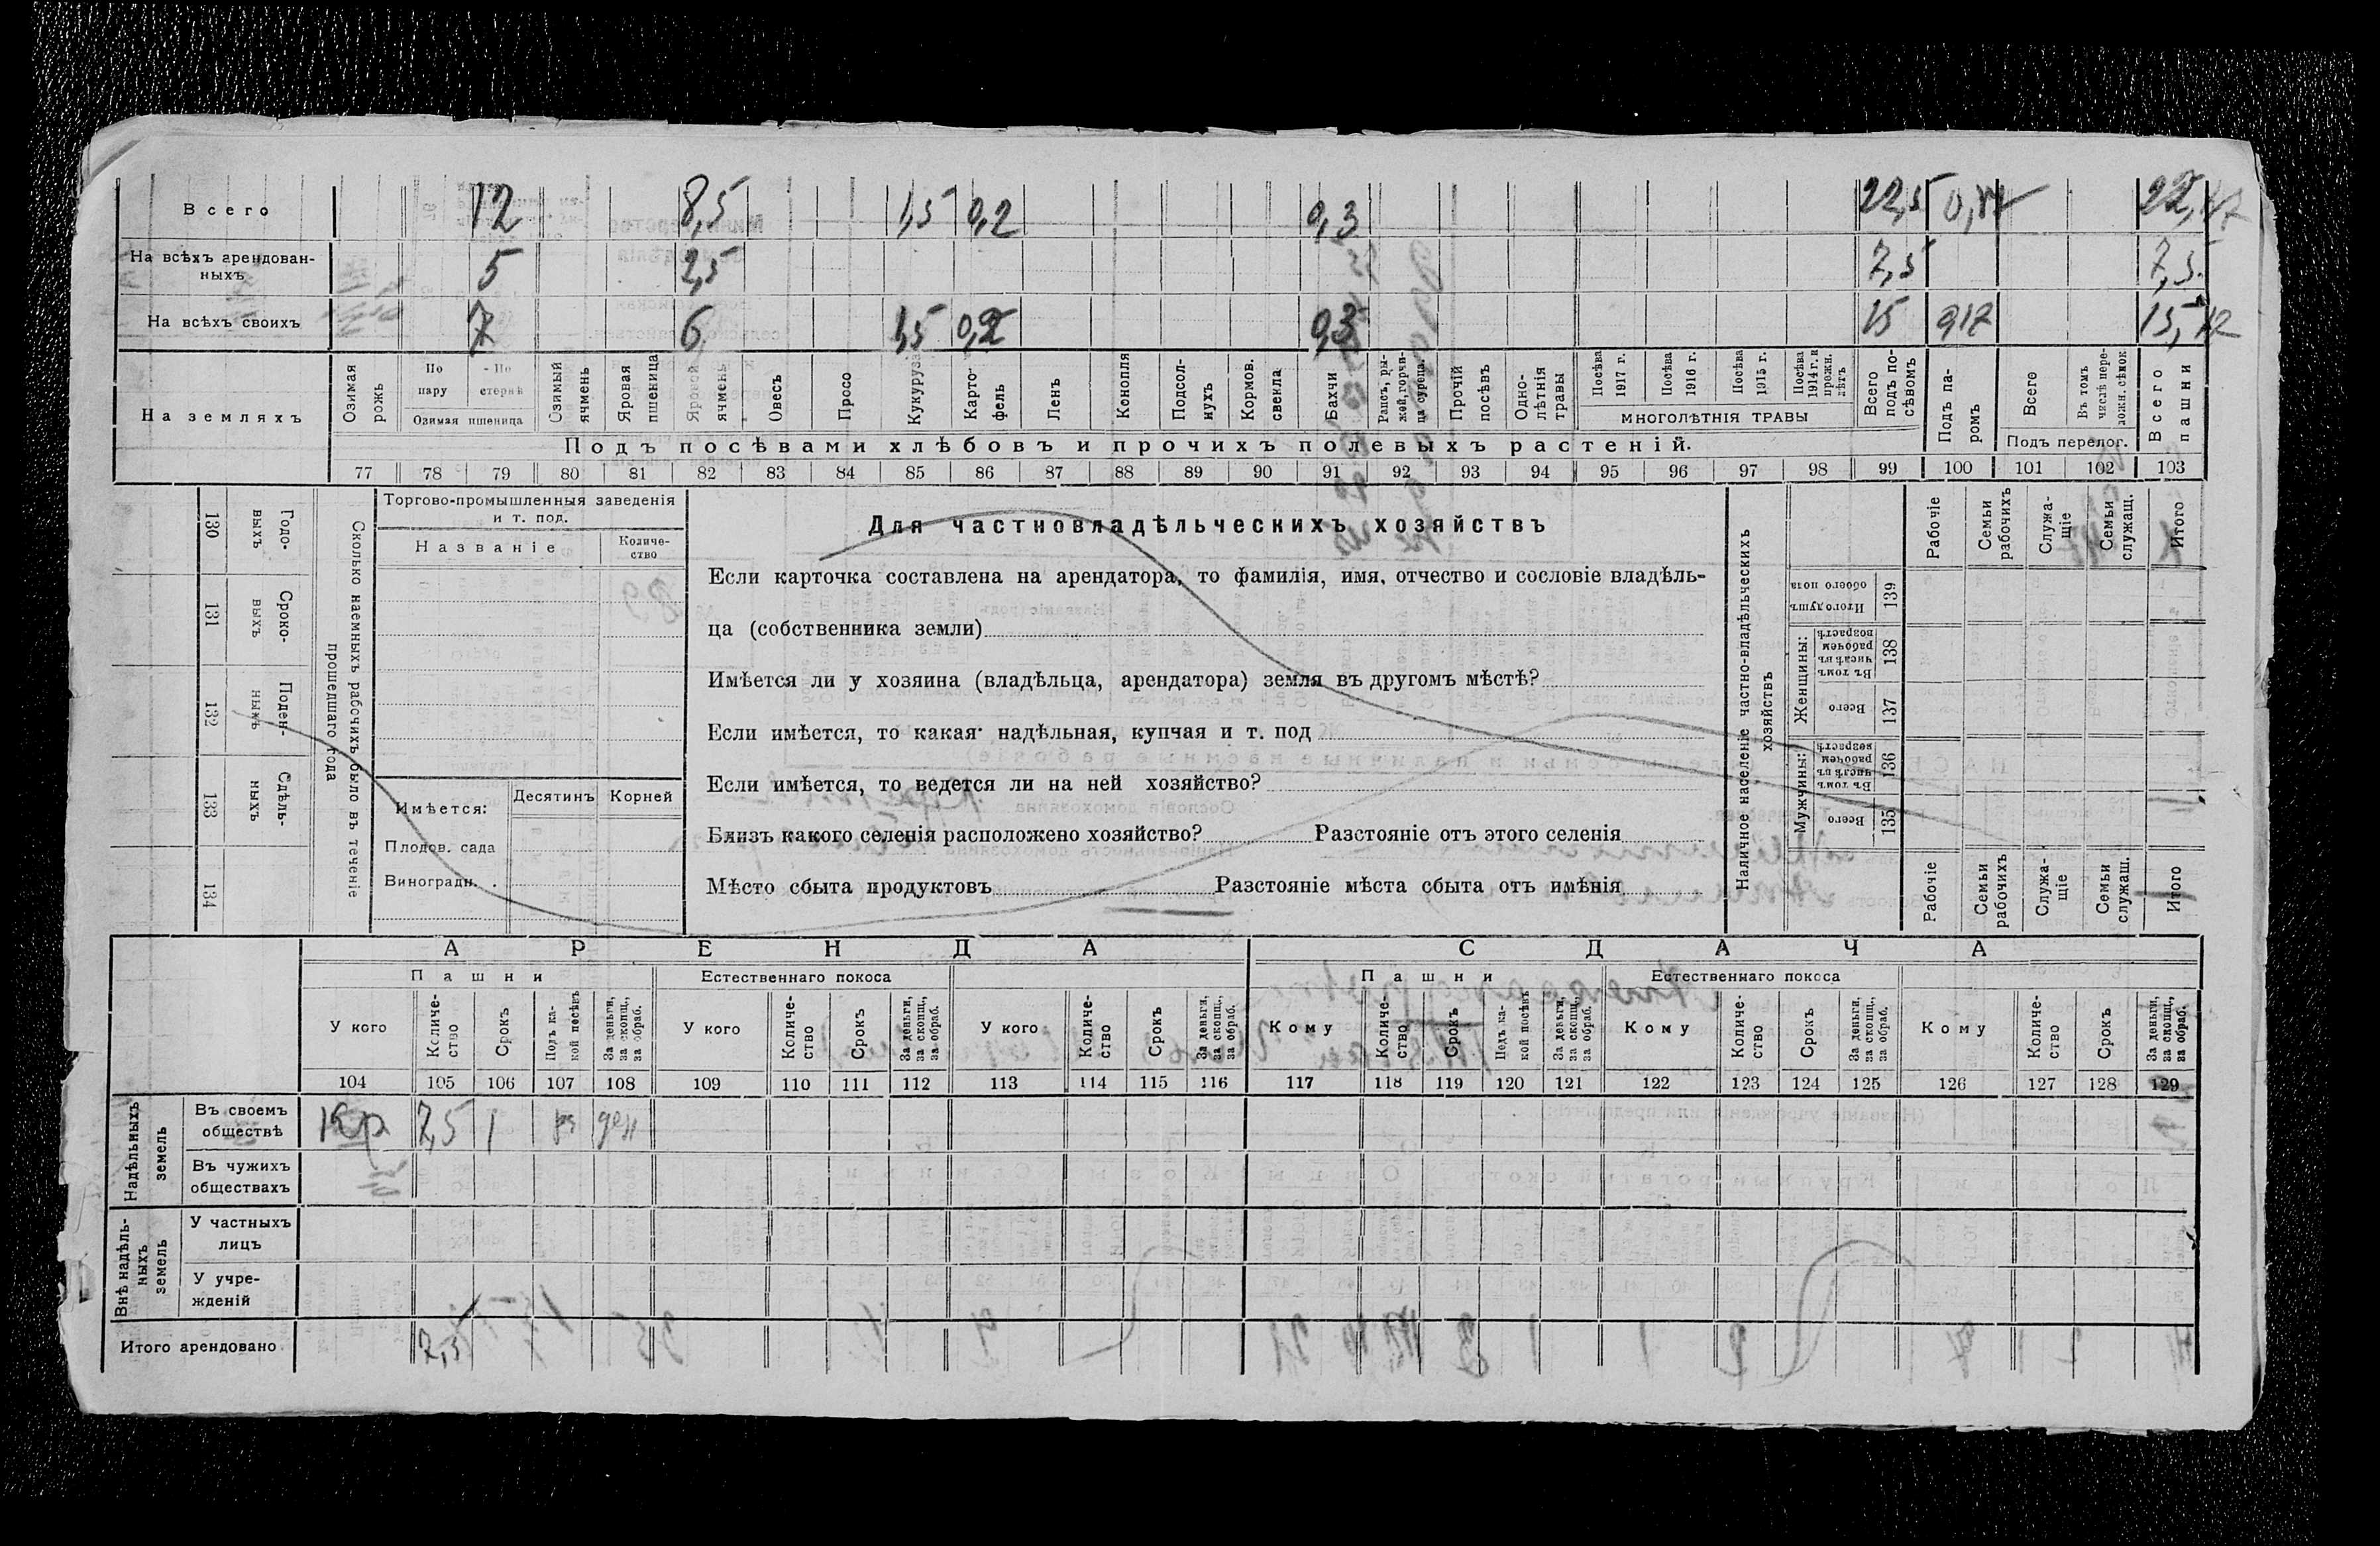 Всего 12 8,5 1,5 0,2 0,3 22,5
На всѣхъ арендован-
ныхъ 5 2,5 7,5 7,5
На всѣхъ своихъ 7 6 1,5 0,2 0,3 15
На земляхъ
Озимая
рожь
По
пару
По
стернѣ
Озимая пшеница
Озимый
ячмень
Яровая
пшеница
Яровой
ячмень
Овесъ
Просо
Кукуруза
Карто-
фель
Ленъ
Конопля
Подсол-
нухъ
Кормов.
свекла
Бахчи
Рапсъ, ры-
жей, горчи-
ца сурепа.
Прочій
посѣвъ
Одно-
лѣтнія
травы
Посѣва
1917 г.
Посѣва
1916 г.
Посѣва
1915 г.
Посѣва
1914 г. и
прежн.
лѣтъ
МНОГОЛѢТНІЯ ТРАВЫ
Всего
подъ по-
сѣвомъ
Подъ па-
ромъ
Всего
Въ томъ
числѣ пере-
ложн. сѣнок.
Подъ перелог.
Всего
пашни
Подъ посѣвами хлѣбовъ и прочихъ полевыхъ растеній.
77 78 79 80 81 82 83 84 85 86 87 88 89 90 91 92 93 94 95 96 97 98 99 100 101 102 103
130 Годо-
выхъ
131 Сроко-
выхъ
132 Поден-
ныхъ
133 Сдѣль-
ныхъ
134
Сколько наемныхъ рабочихъ было въ теченіе
прошедшаго года
Торгово-промышленныя заведенія
и т. под.
Названіе
Количе-
ство
Имѣется:
Десятинъ
Корней
Плодов. сада
Виноградн.
Для частновладѣльческихъ хозяйствъ
Если карточка составлена на арендатора, то фамилія, имя, отчество и сословіе владѣль-
ца (собственника земли)
Имѣется ли у хозяина (владѣльца, арендатора) земля въ другомъ мѣстѣ?
Если имѣется, то какая надѣльная, купчая и т. под
Если имѣется, то ведется ли на ней хозяйство?
Близъ какого селенія расположено хозяйство? Разстояніе отъ этого селенія
Мѣсто сбыта продуктовъ Разстояніе мѣста сбыта отъ имѣнія
Наличное населеніе частно-владѣльческихъ
хозяйствъ
Рабочіе
Семьи
рабочихъ
Служа-
щіе
Семьи
служащ.
Итого
Итого душъ
обоего пола
139
Женщины:
Въ томъ
числѣ въ
рабочем
возрастѣ
138
Всего
137
Мужчины:
Въ томъ
числѣ въ
рабочем
возрастѣ
136
Всего
135
Рабочіе
Семьи
рабочихъ
Служа-
щіе
Семьи
служащ.
Итого
АРЕНДА
СДАЧА
Пашни
Естественнаго покоса
Пашни
Естественнаго покоса
У кого
Количе-
ство
Срокъ
Подъ ка-
кой посѣвъ
За деньги,
за скопщ.,
за обраб.
У кого
Количе-
ство
Срокъ
За деньги,
за скопщ.,
за обраб.
У кого
Количе-
ство
Срокъ
За деньги,
за скопщ.,
за обраб.
Кому
Количе-
ство
Срокъ
Подъ ка-
кой посѣвъ
За деньги,
за скопщ.,
за обраб.
Кому
Количе-
ство
Срокъ
За деньги,
за скопщ.,
за обраб.
Кому
Количе-
ство
Срокъ
За деньги,
за скопщ.,
за обраб.
104 105 106 107 108 109 110 111 112 113 114 115 116 117 118 119 120 121 122 123 124 125 126 127 128 129
Надѣльныхъ
земель
Въ своемъ
обществѣ
Кр 7,5 1 ден
Въ чужихъ
обществахъ
Внѣ надѣль-
ныхъ
земель
У частныхъ
лицъ
У учре-
жденій
Итого арендовано 7,5